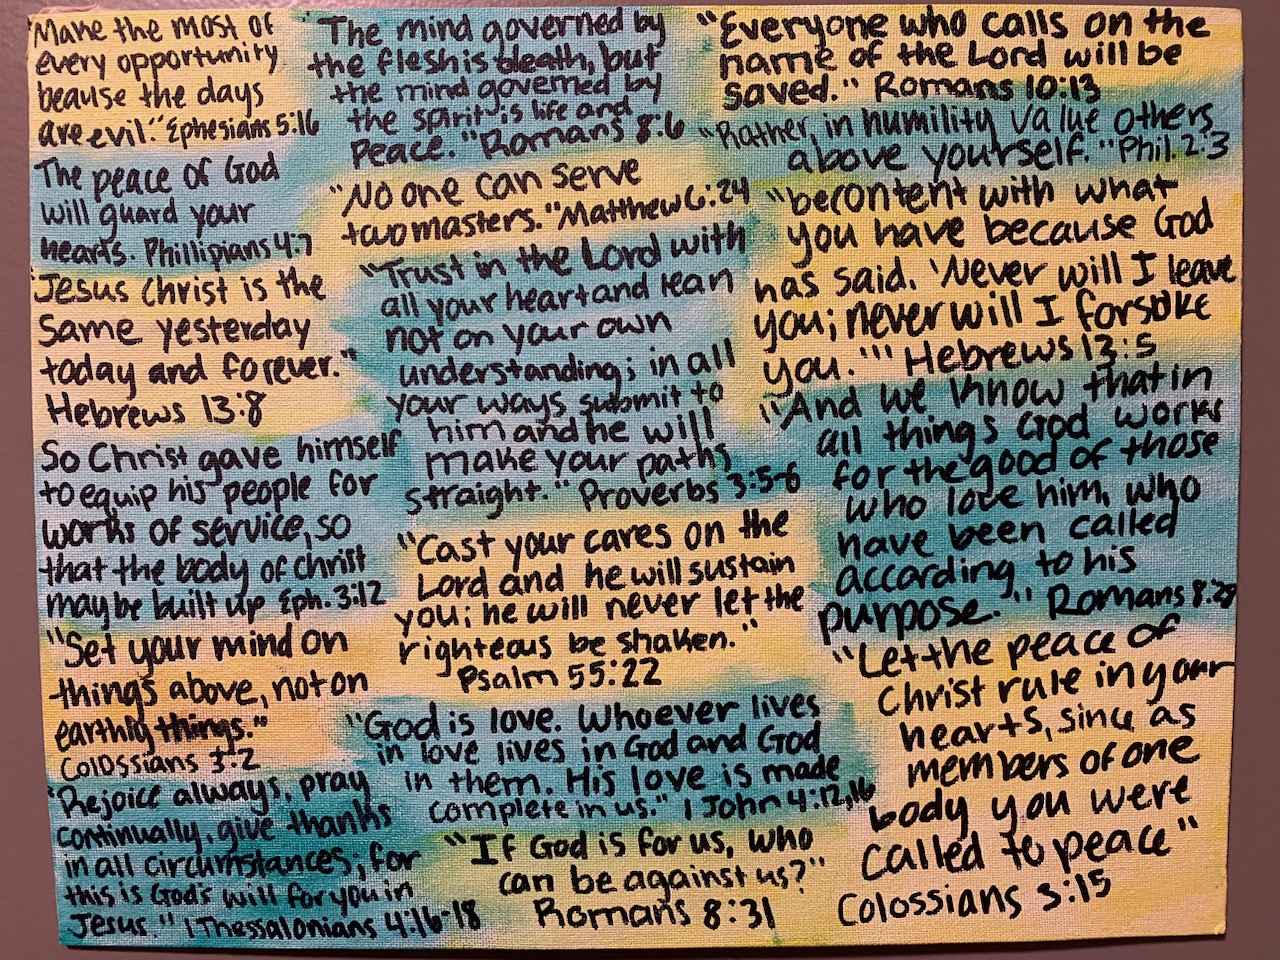 Make the most of
every opportunity
beause the days
are evil." Ephesians 5:16
The peace of God
will guard your
hearts. Phillipians 4:7
"Jesus Christ is the
same yesterday
today and forever."
Hebrews 13:8
So Christ gave himself
to equip his people for
works of service, so
that the body of christ
may be built up Eph. 3:12
"Set your mind on
things above, not on
earthly things."
Colossians 3:2
"Rejoice always, pray
continually, give thanks
in all circumstances; for
this is God's will for you in
Jesus." 1 Thessalonians 4:16-18
"The mind governed by
the flesh is death, but
the mind governed by
the spirit is life and
Peace." Romans 8:6
"No one can serve
two masters." Matthew 6:24
"Trust in the Lord with
all your heart and lean
not on your own
understanding; in all
your ways submit to
him and he will
make your paths
straight." Proverbs 3:5-6
"Cast your cares on the
Lord and he will sustain
you; he will never let the
righteous be shaken."
Psalm 55:22
"God is love. Whoever lives
in love lives in God and God
in them. His love is made
complete in us." 1 John 4:12,16
"If God is for us, who
can be against us?"
Romans 8:31
"Everyone who calls on the
name of the Lord will be
saved." Romans 10:13
"Rather, in humility value others
above yourself." Phil. 2:3
"be content with what
you have because God
has said, 'Never will I leave
you; never will I forsake
you.'" Hebrews 13:5
"And we know that in
all things God works
for the good of those
who love him, who
have been called
according to his
purpose." Romans 8:28
"Let the peace of
Christ rule in your
hearts, since as
members of one
body you were
called to peace"
Colossians 3:15